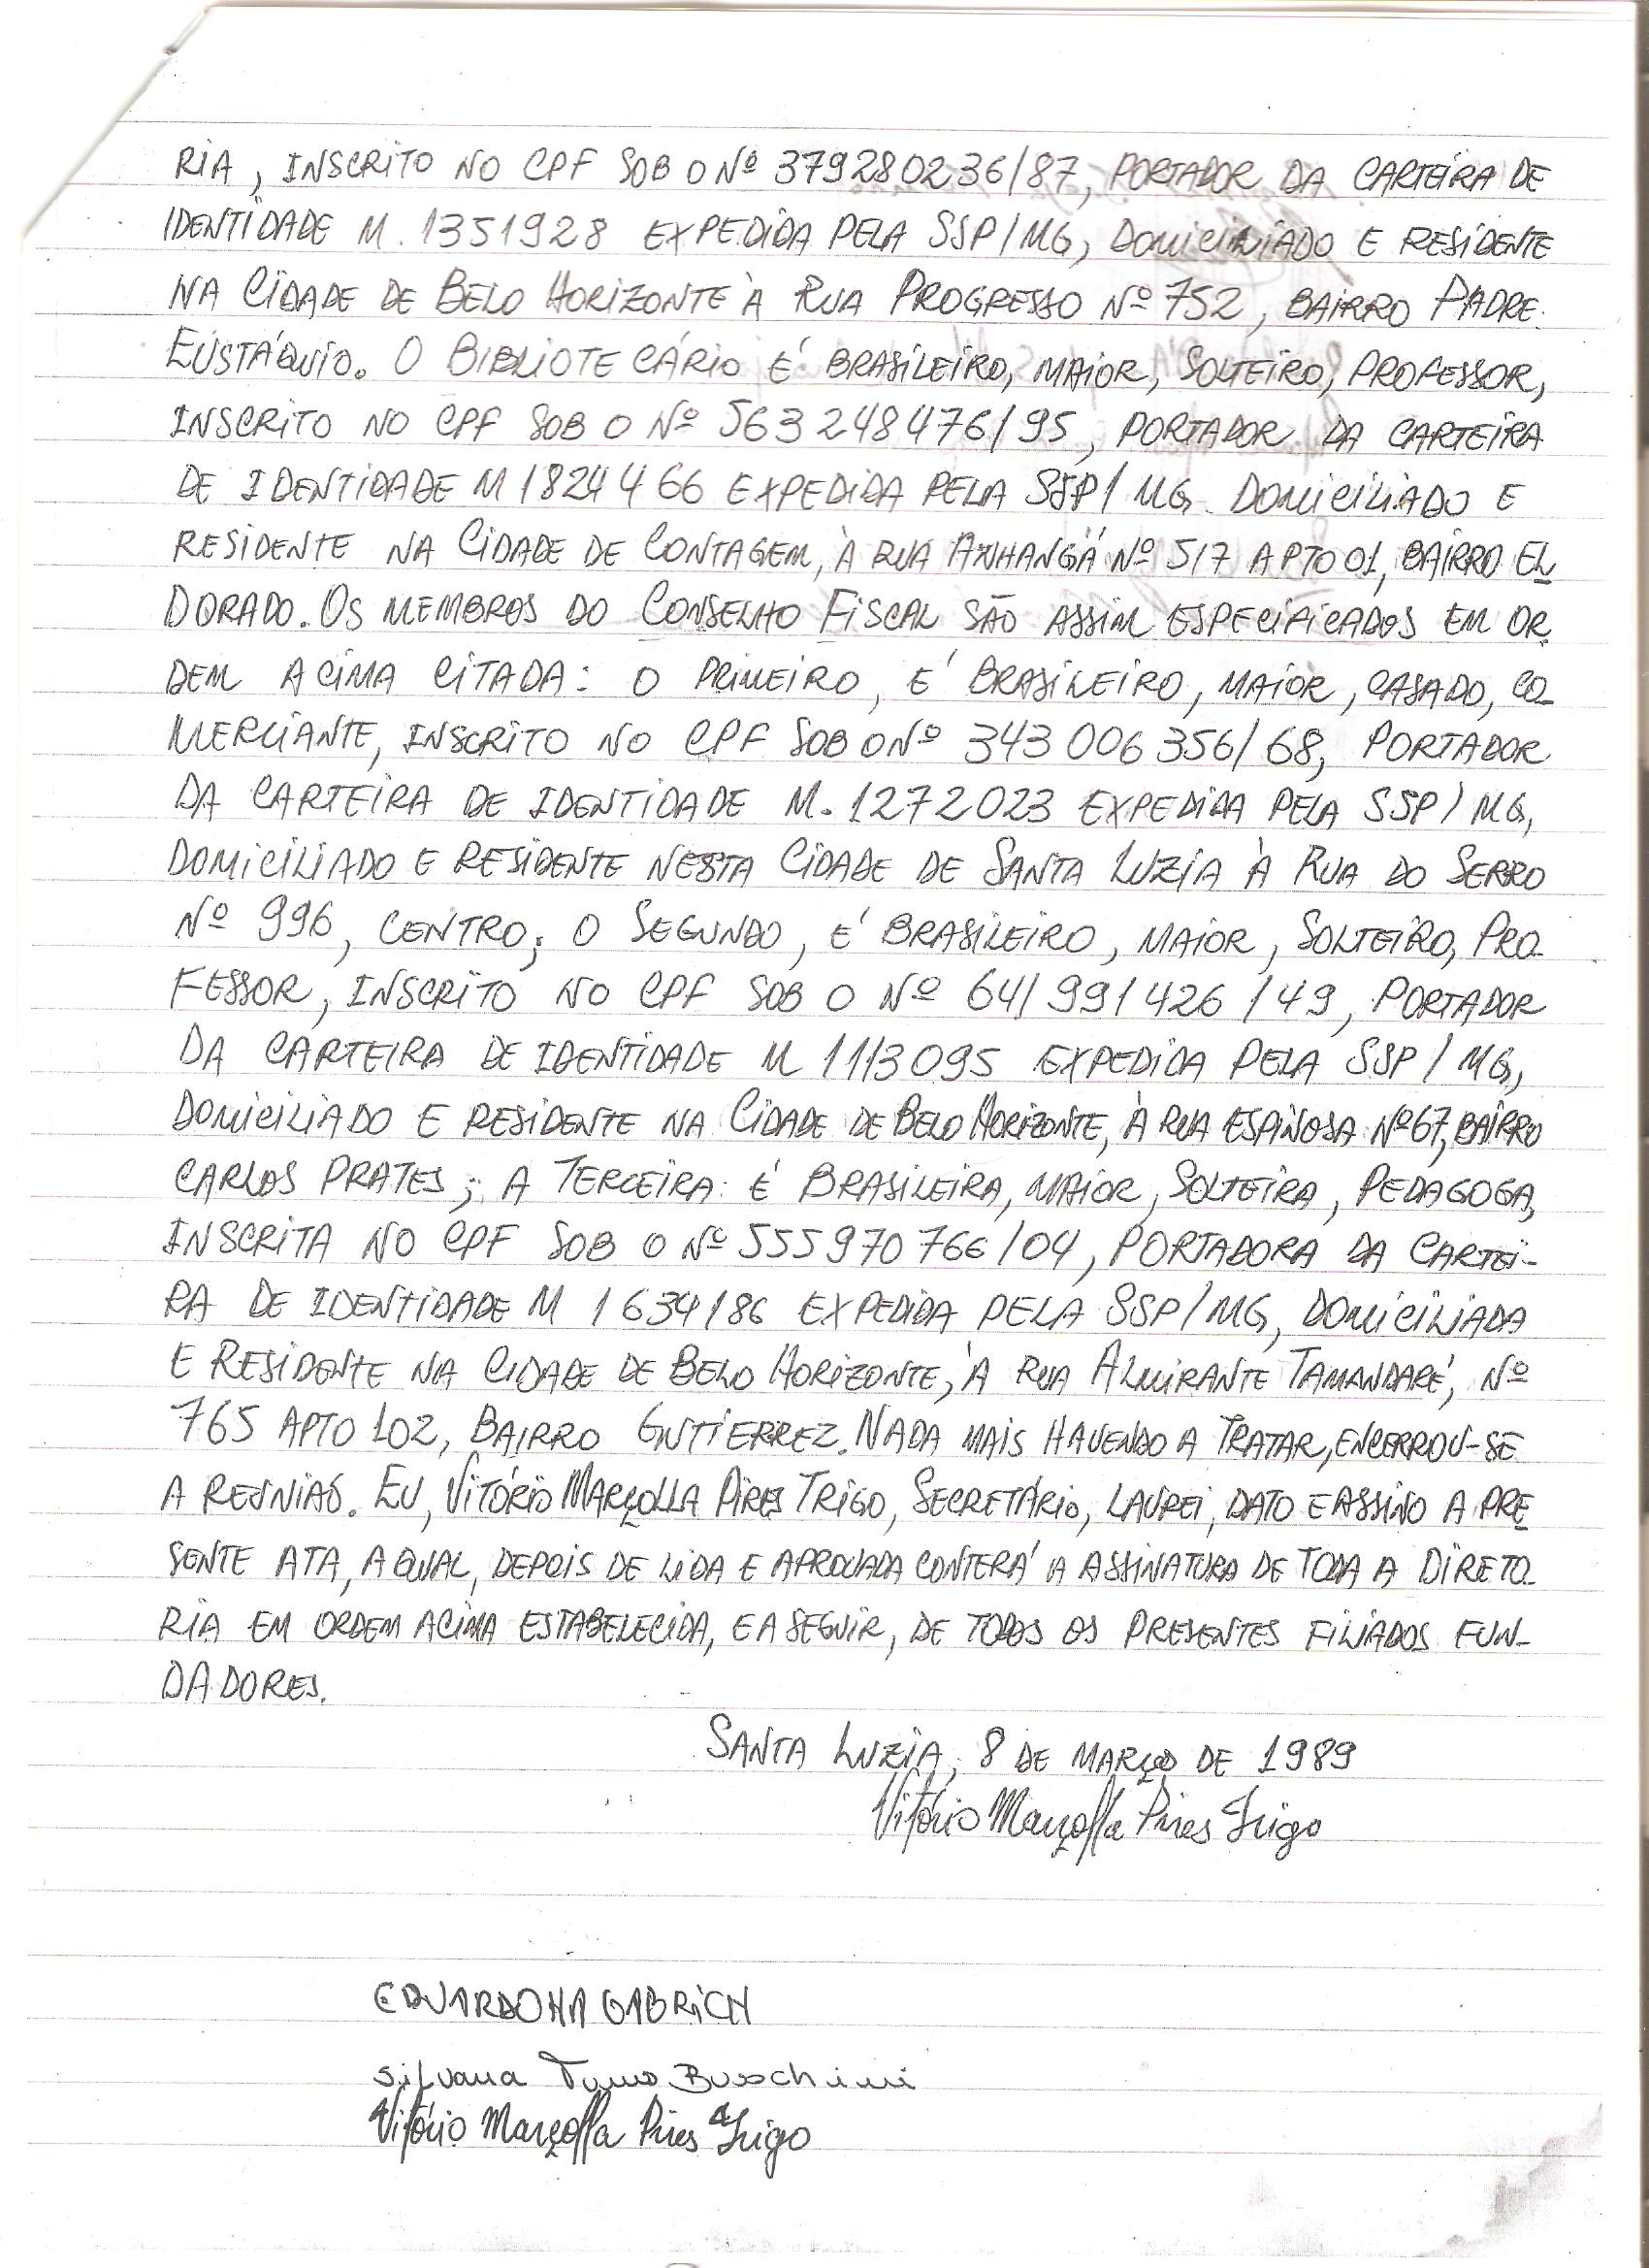 RIA, INSCRITO NO CPF SOB O Nº 379280236/87, PORTADOR DA CARTEIRA DE
IDENTIDADE M. 1351928 EXPEDIDA PELA SSP/MG, DOMICILIADO E RESIDENTE
NA CIDADE DE BELO HORIZONTE À RUA PROGRESSO Nº 752, BAIRRO PADRE
EUSTÁQUIO. O BIBLIOTECÁRIO É BRASILEIRO, MAIOR, SOLTEIRO, PROFESSOR,
INSCRITO NO CPF SOB O Nº 563248476/95, PORTADOR DA CARTEIRA
DE IDENTIDADE M 1824466 EXPEDIDA PELA SSP/MG. DOMICILIADO E
RESIDENTE NA CIDADE DE CONTAGEM, À RUA ANHANGÁ Nº 517 APTO 01, BAIRRO EL
DORADO. OS MEMBROS DO CONSELHO FISCAL SÃO ASSIM ESPECIFICADOS EM OR
DEM ACIMA CITADA: O PRIMEIRO, É BRASILEIRO, MAIOR, CASADO, CO_
MERCIANTE, INSCRITO NO CPF SOB O Nº 343006356/68, PORTADOR
DA CARTEIRA DE IDENTIDADE M. 1272023 EXPEDIDA PELA SSP/MG,
DOMICILIADO E RESIDENTE NESTA CIDADE DE SANTA LUZIA À RUA DO SERRO
Nº 996, CENTRO; O SEGUNDO, É BRASILEIRO, MAIOR, SOLTEIRO, PRO_
FESSOR, INSCRITO NO CPF SOB O Nº 641991426/49, PORTADOR
DA CARTEIRA DE IDENTIDADE M 1113095 EXPEDIDA PELA SSP/MG,
DOMICILIADO E RESIDENTE NA CIDADE DE BELO HORIZONTE, À RUA ESPINOSA Nº 67, BAIRRO
CARLOS PRATES; A TERCEIRA: É BRASILEIRA, MAIOR, SOLTEIRA, PEDAGOGA,
INSCRITA NO CPF SOB O Nº 555970766/04, PORTADORA DA CARTEI-
RA DE IDENTIDADE M 1634186 EXPEDIDA PELA SSP/MG, DOMICILIADA
E RESIDENTE NA CIDADE DE BELO HORIZONTE, À RUA ALMIRANTE TAMANDARÉ, Nº
765 APTO 102, BAIRRO GUTIERREZ. NADA MAIS HAVENDO A TRATAR, ENCERROU-SE
A REUNIÃO. EU, VITÓRIO MARÇOLLA PIRES TRIGO, SECRETÁRIO, LAVREI, DATO E ASSINO A PRE
SENTE ATA, A QUAL, DEPOIS DE LIDA E APROVADA CONTERÁ A ASSINATURA DE TODA A DIRETO_
RIA EM ORDEM ACIMA ESTABELECIDA, E A SEGUIR, DE TODOS OS PRESENTES FILIADOS FUN_
DADORES.
SANTA LUZIA, 8 DE MARÇO DE 1989
Vitório Marçolla Pires Trigo
EDUARDO HA GABRICH
Silvana Buschini
Vitório Marçolla Pires Trigo